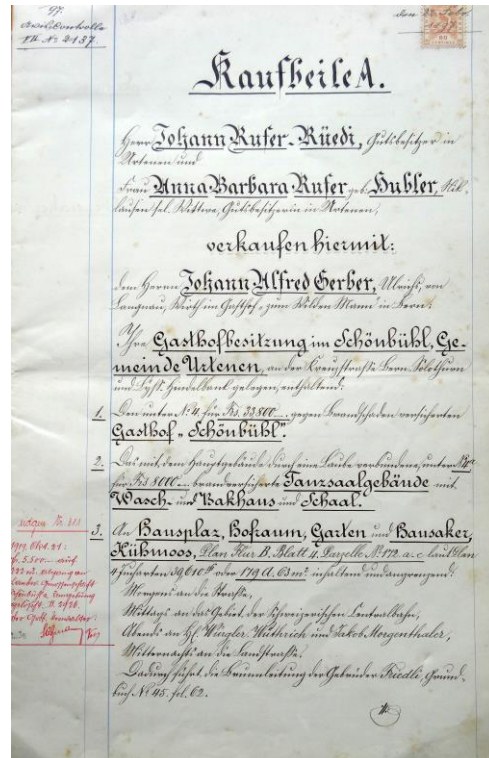 97.
VII. No 2137.
den 22. Febr.
1897.
Kaufbeile A.
Herr Johann Rufer-Rüedi, Gutsbesitzer in
Urtenen und
Frau Anna Barbara Rufer geb. Hubler, Nik-
lausen sel. Wittwe, Gutsbesitzerin in Urtenen,
verkaufen hiermit:
dem Herrn Johann Alfred Gerber, Ulrichs, von
Langnau, Wirth im Gasthof "zum Wilden Mann" in Bern:
Ihre Gasthofbesitzung im Schönbühl, Ge-
meinde Urtenen, an der Kreuzstraße Bern-Solothurn
und Lyß-Hindelbank gelegen, enthaltend:
1. Den unter No 4 für Frs. 33800.- gegen Brandschaden versicherten
Gasthof "Schönbühl".
2. Das mit dem Hauptgebäude durch eine Laube verbundene, unter No 4a
für Frs 8000.- brandversicherte Tanzsaalgebäude mit
Wasch- und Bakhaus und Schaal.
3. An Bausplaz, Hofraum, Garten und Hausaker,
Kühmoos, Plan Flur B, Blatt 4, Parzelle No 172. a-c laut Plan
4 Jucharten 39,610 oder 179 a. 63 m² inhaltend und angrenzend:
Morgens an die Straße,
Mittags an das Gebiet der Schweizerischen Centralbahn,
Abends an Würgler, Wüthrich und Jakob Morgenthaler,
Mitternachts an die Landstraße.
Dadurch führt die Brunnleitung der Gebrüder Riedli, Grund-
buch No 45. fol. 62.